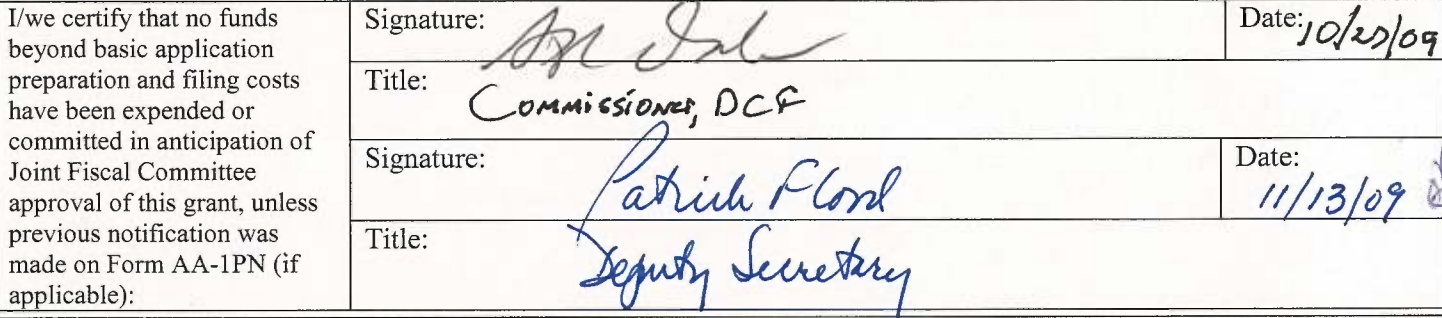 I/we certify that no funds
beyond basic application
preparation and filing costs
have been expended or
committed in anticipation of
Joint Fiscal Committee
approval of this grant, unless
previous notification was
made on Form AA-1PN (if
applicable):
Signature:
Date:
Title: Commissioner, DCF
Signature: Patrick Flood
Date: 11/13/09
Title: Deputy Secretary